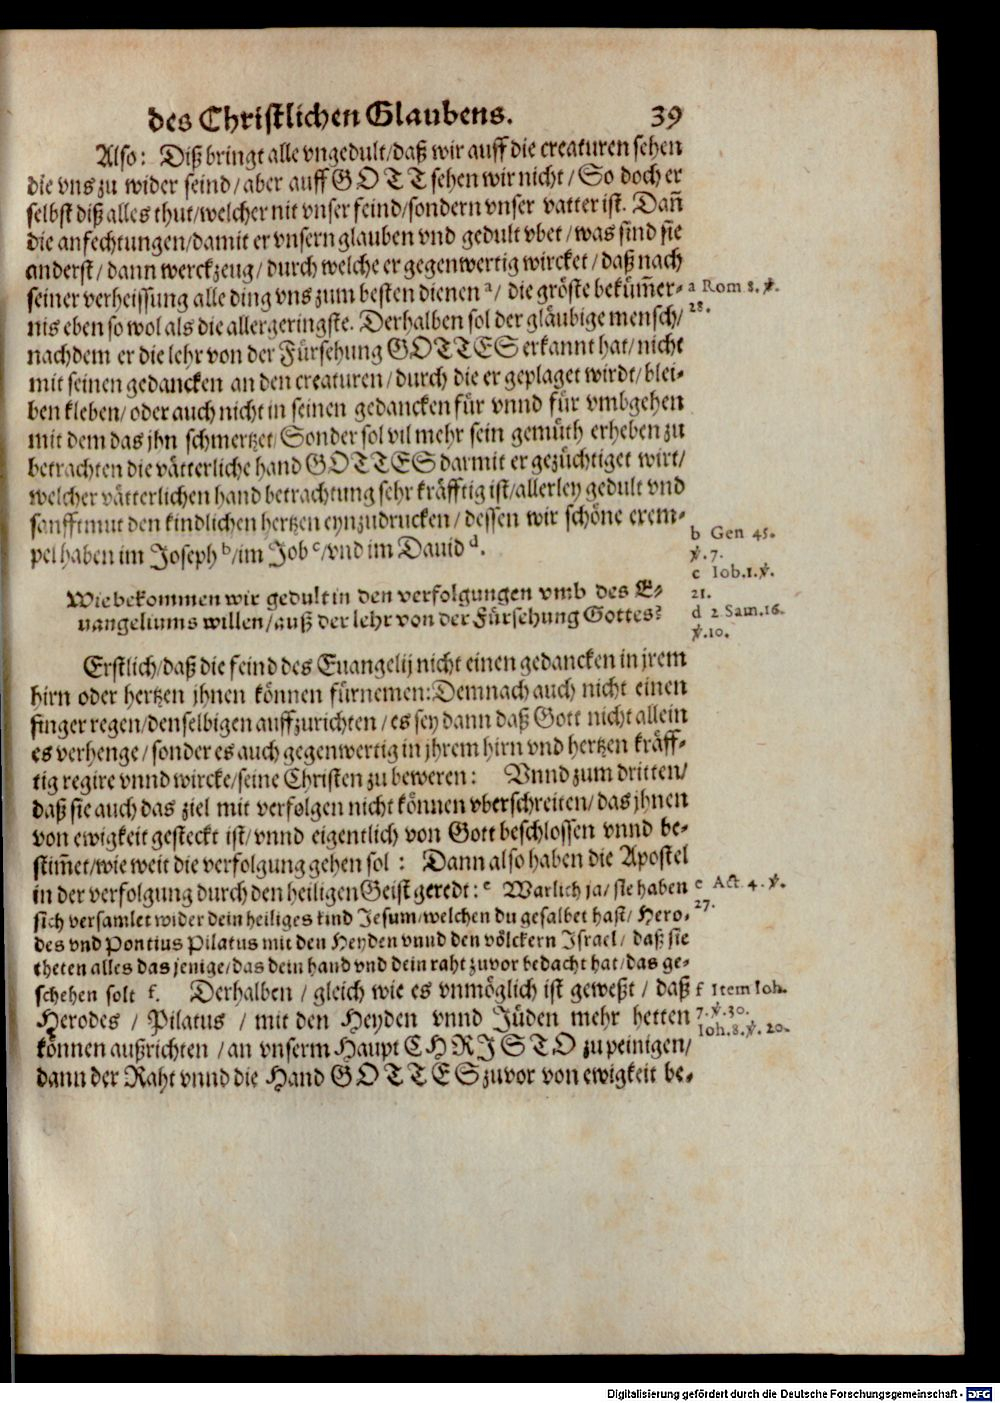 des Christlichen Glaubens. 39
Also: Diß bringt alle vngedult/daß wir auff die creaturen sehen
die vns zu wider seind/aber auff GOTT sehen wir nicht/So doch er
selbst diß alles thut/welcher nit vnser feind/sondern vnser vatter ist. Dañ
die anfechtungen/damit er vnsern glauben vnd gedult vbet/was sind sie
anderst/dann werckzeug/durch welche er gegenwertig wircket/daß nach
seiner verheissung alle ding vns zum besten dienen a/die gröste bekům̃er-
nis eben so wol als die allergeringste. Derhalben sol der gläubige mensch/
nachdem er die lehr von der Fürsehung GOTTES erkannt hat/nicht
mit seinen gedancken an den creaturen/durch die er geplaget wirdt/blei-
ben kleben/oder auch nicht in seinen gedancken für vnnd für vmbgehen
mit dem das jhn schmertzet/Sonder sol vil mehr sein gemüth erheben zu
betrachten die vätterliche hand GOTTES darmit er gezüchtiget wirt/
welcher vätterlichen hand betrachtung sehr kräfftig ist/allerley gedult vnd
sanfftmut den kindlichen hertzen eynzudrucken/dessen wir schöne exem-
pel haben im Joseph b/im Job c/vnd im Dauid d.
Wie bekommen wir gedult in den verfolgungen vmb des E-
uangeliums willen/auß der lehr von der Fürsehung Gottes?
Erstlich/daß die feind des Euangelij nicht einen gedancken in jrem
hirn oder hertzen jhnen können fürnemen: Demnach auch nicht einen
finger regen/denselbigen auffzurichten/es sey dann daß Gott nicht allein
es verhenge/sonder es auch gegenwertig in jhrem hirn vnd hertzen kräff-
tig regire vnnd wircke/seine Christen zu beweren: Vnnd zum dritten/
daß sie auch das ziel mit verfolgen nicht können vberschreiten/das jhnen
von ewigkeit gesteckt ist/vnnd eigentlich von Gott beschlossen vnnd be-
stim̃et/wie weit die verfolgung gehen sol: Dann also haben die Apostel
in der verfolgung durch den heiligen Geist geredt: e Warlich ja/sie haben
sich versamlet wider dein heiliges kind Jesum/welchen du gesalbet hast/Hero-
des vnd Pontius Pilatus mit den Heyden vnnd den völckern Israel/daß sie
theten alles das jenige/das dein hand vnd dein raht zuvor bedacht hat/das ge-
schehen solt f. Derhalben/gleich wie es vnmöglich ist geweßt/daß
Herodes/Pilatus/mit den Heyden vnnd Jüden mehr hetten
können außrichten/an vnserm Haupt CHRISTO zu peinigen/
dann der Raht vnnd die Hand GOTTES zuvor von ewigkeit be-
a Rom 8. ℣.
28.
b Gen 45.
℣.7.
c Iob.1.℣.
21.
d 2 Sam.16.
℣.10.
e Act 4.℣.
27.
f Item Ioh.
7.℣.30.
Ioh.8.℣.20.
Digitalisierung gefördert durch die Deutsche Forschungsgemeinschaft - DFG